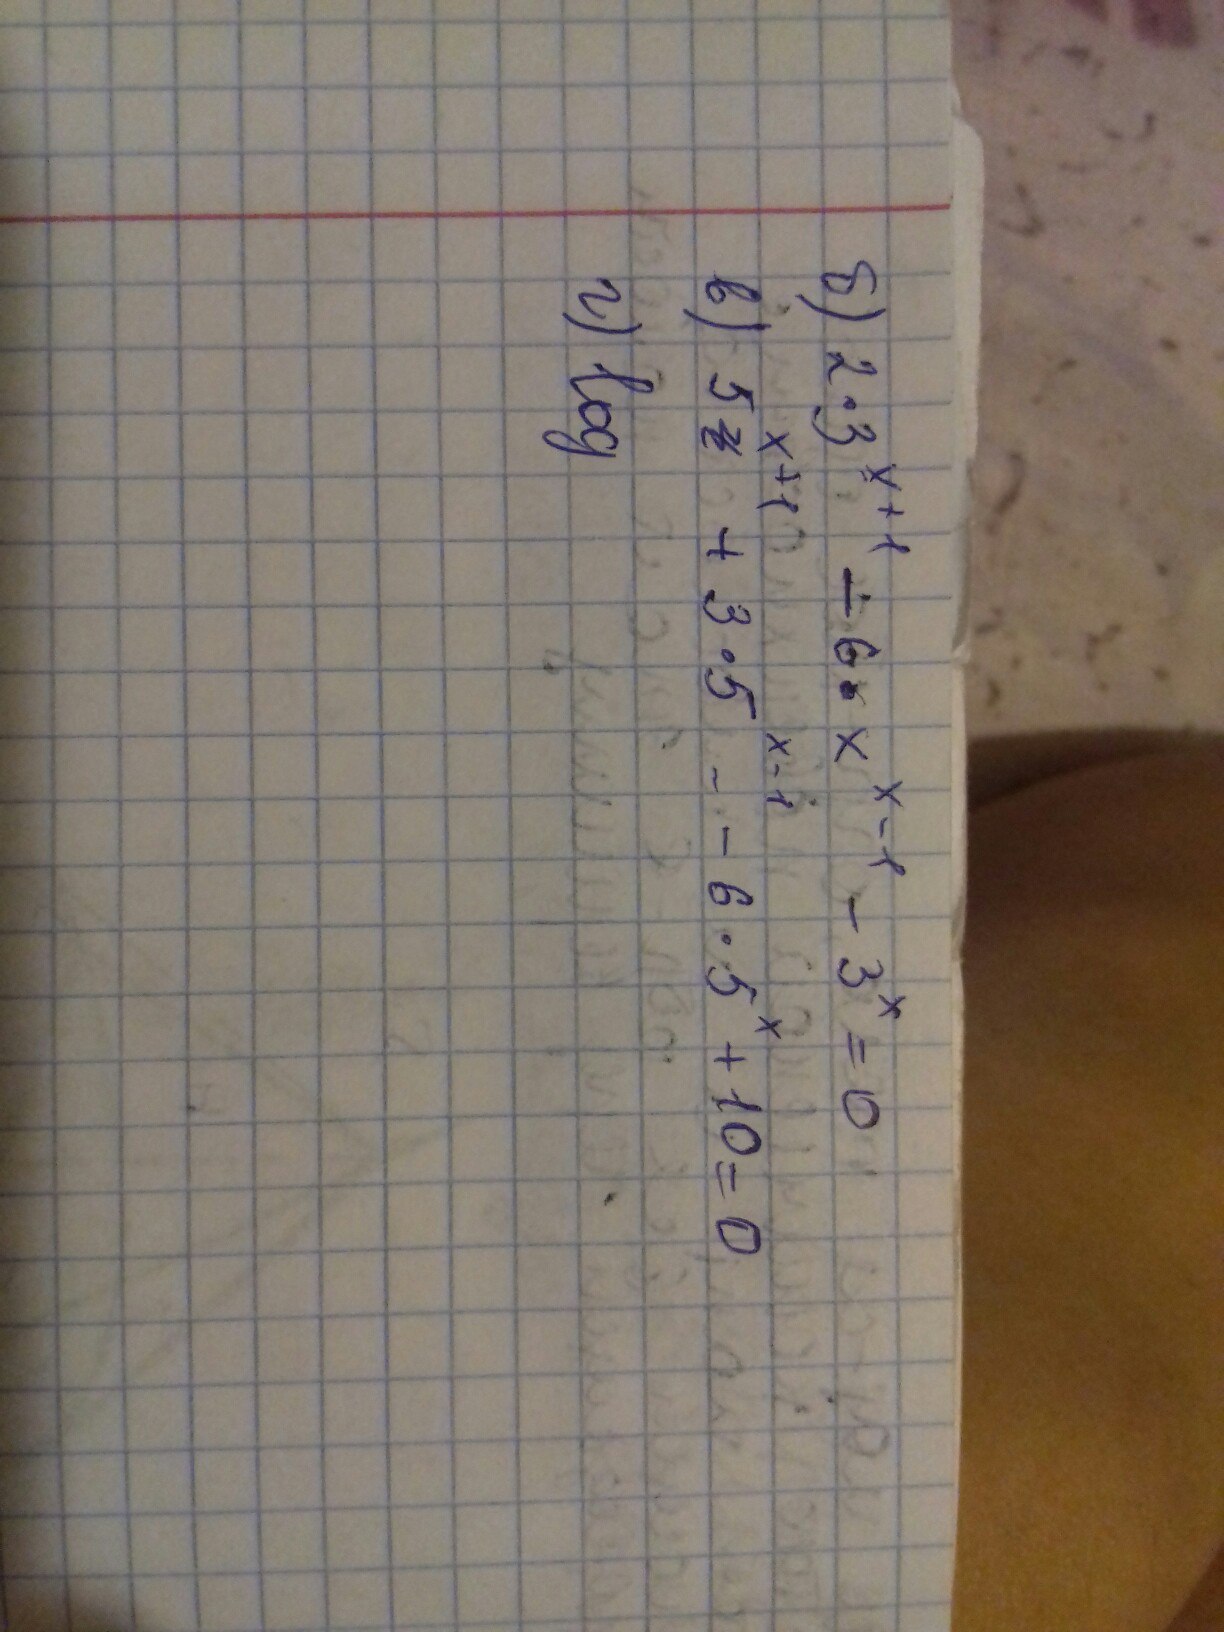 б) 2·3^(x+1) - 6·x^(x-1) - 3^x = 0
в) 5^(x+1) + 3·5^(x-1) - - 6·5^x + 10 = 0
г) log